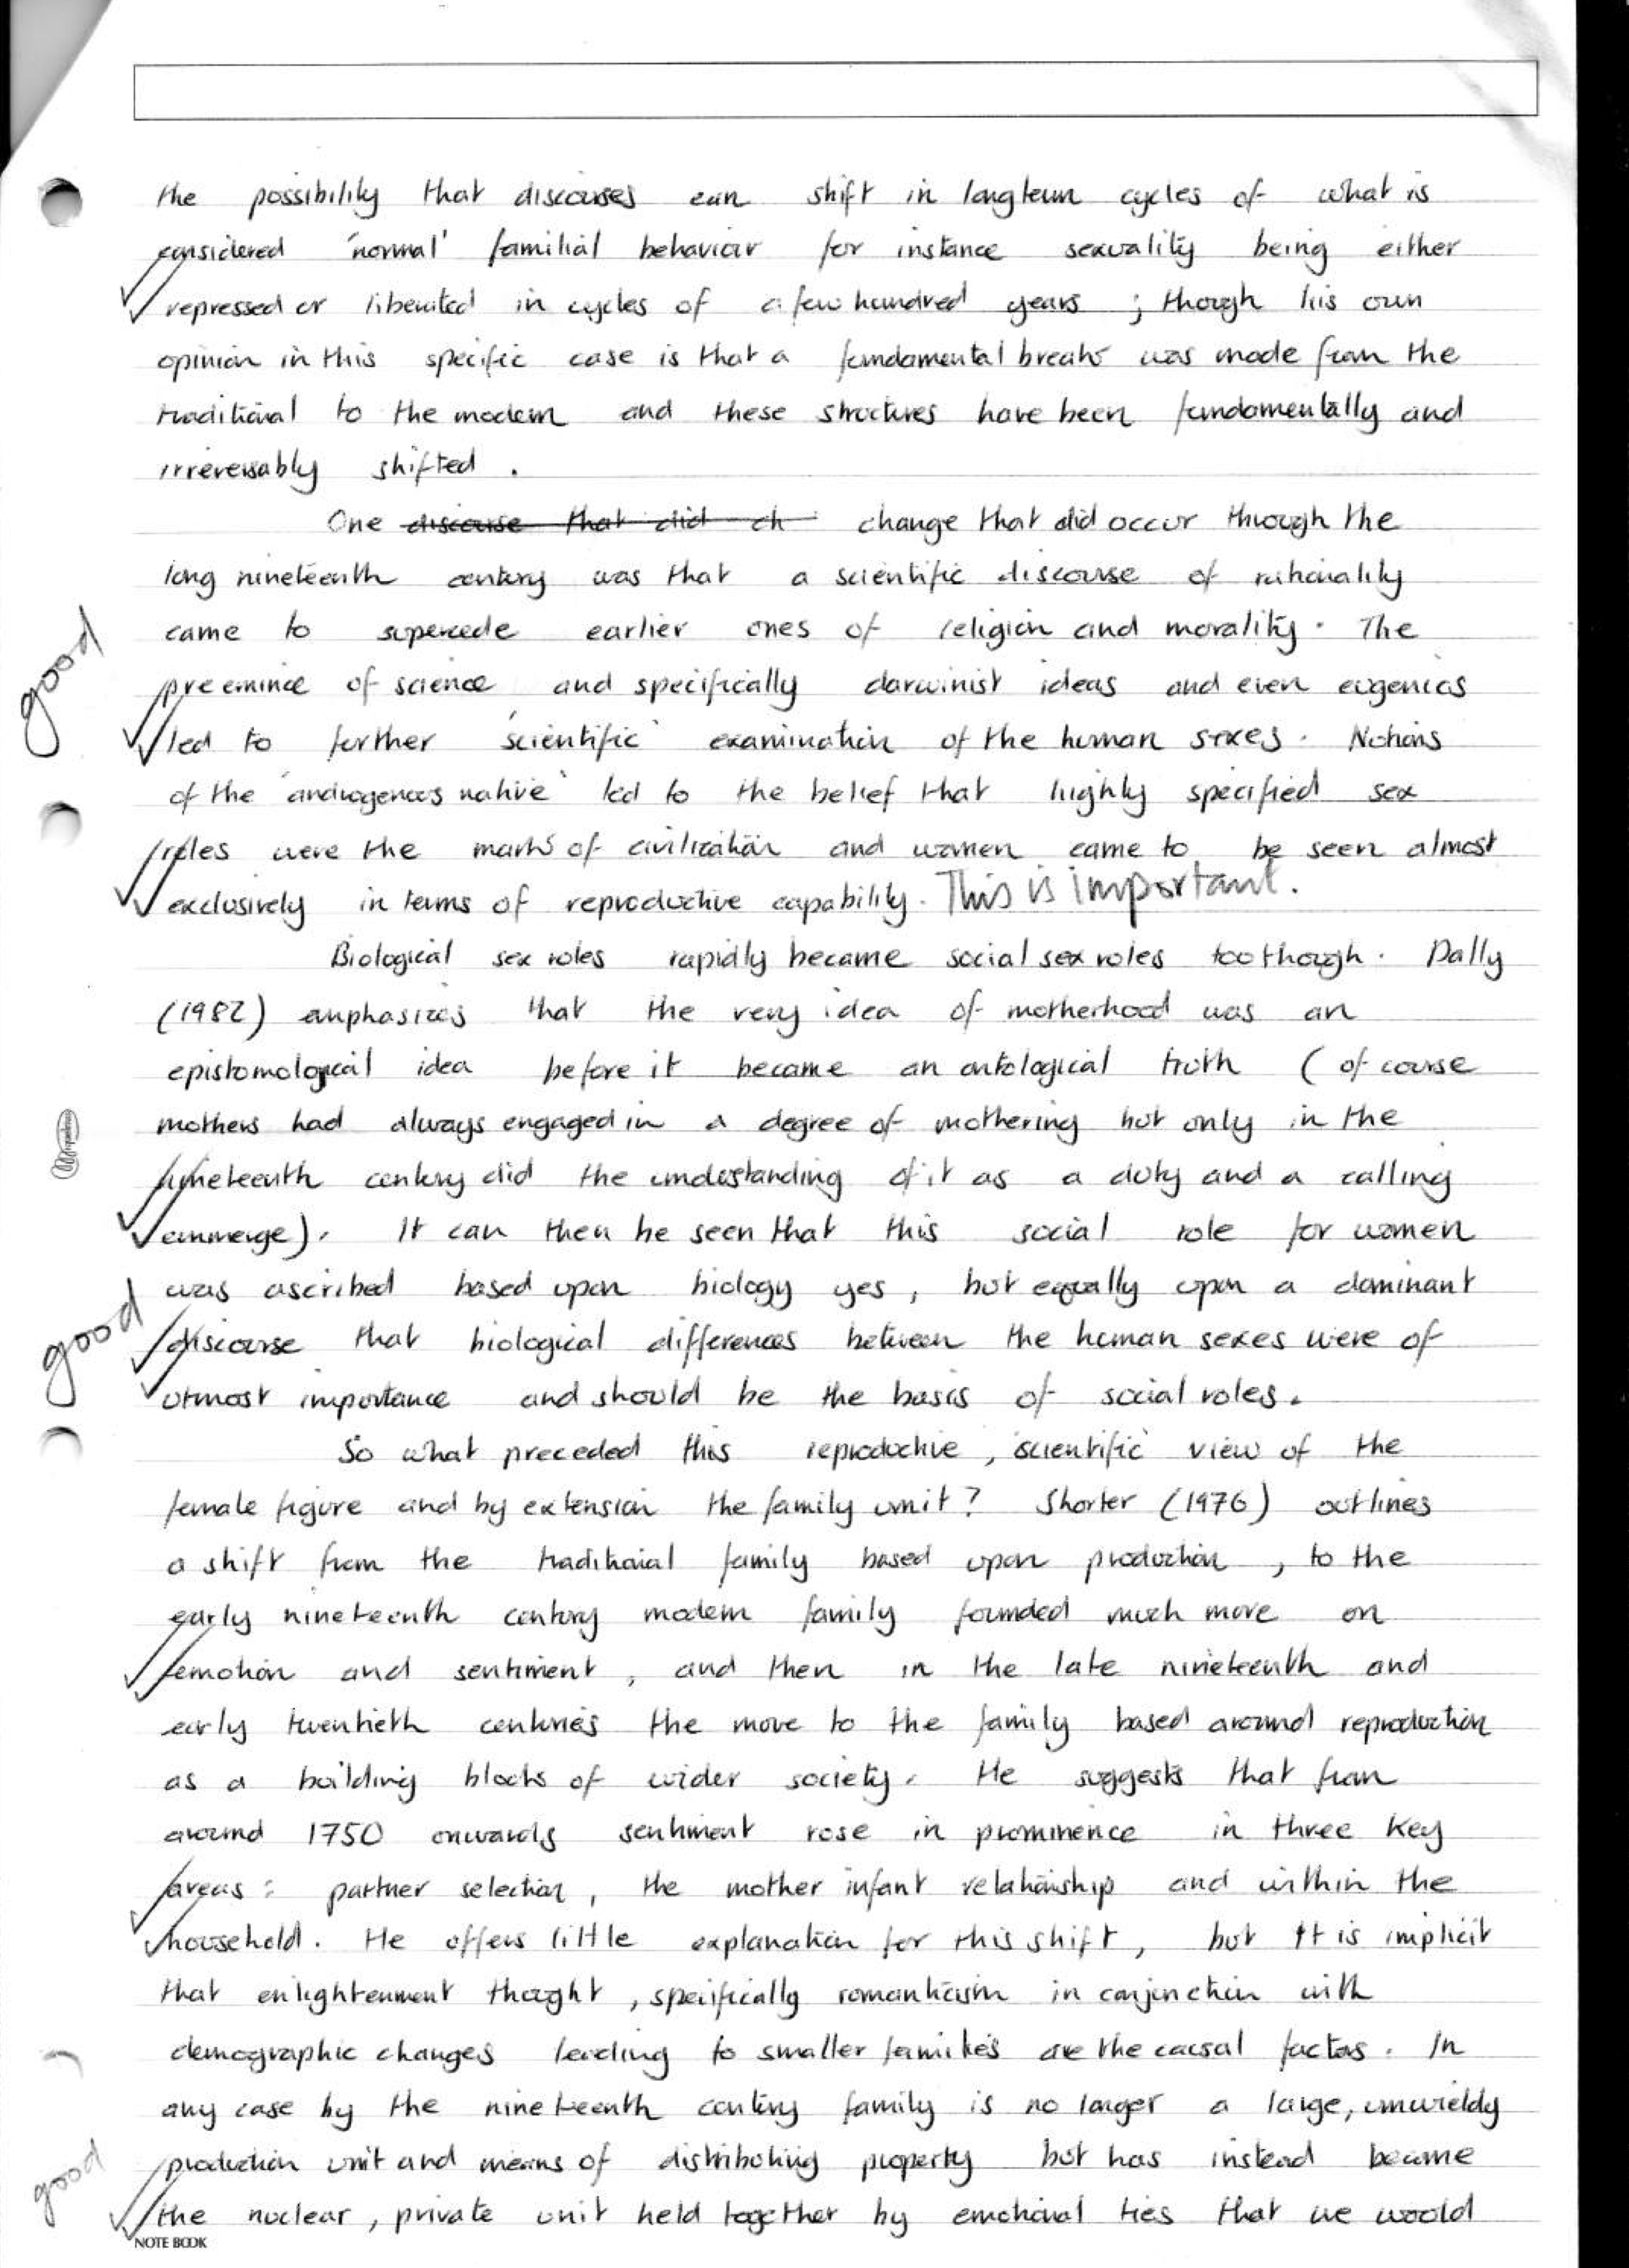 the possibility that discourses can shift in longterm cycles of what is
considered 'normal' familial behaviour for instance sexuality being either
repressed or liberated in cycles of a few hundred years ; though his own
opinion in this specific case is that a fundamental break was made from the
traditional to the modern and these structures have been fundamentally and
irreversably shifted .
One discourse that did ch change that did occur through the
long nineteenth century was that a scientific discourse of rationality
came to supercede earlier ones of religion and morality. The
good
preemince of science and specifically darwinist ideas and even eugenics
led to further 'scientific' examination of the human sexes. Notions
of the 'androgenous native' led to the belief that highly specified sex
roles were the marks of civilization and women came to be seen almost
exclusively in terms of reproductive capability. This is important.
Biological sex roles rapidly became social sex roles too though. Dally
(1982) emphasizes that the very idea of motherhood was an
epistomological idea before it became an ontological truth (of course
mothers had always engaged in a degree of mothering but only in the
nineteenth century did the understanding of it as a duty and a calling
emmerge). It can then be seen that this social role for women
was ascribed based upon biology yes, but equally upon a dominant
good
discourse that biological differences between the human sexes were of
utmost importance and should be the basis of social roles.
So what preceded this reproductive, 'scientific' view of the
female figure and by extension the family unit? Shorter (1976) outlines
a shift from the traditional family based upon production, to the
early nineteenth century modern family founded much more on
emotion and sentiment, and then in the late nineteenth and
early twentieth centuries the move to the family based around reproduction
as a building blocks of wider society. He suggests that from
around 1750 onwards sentiment rose in prominence in three key
areas: partner selection, the mother infant relationship and within the
household. He offers little explanation for this shift, but it is implicit
that enlightenment thought, specifically romanticism in conjunction with
demographic changes leading to smaller families are the causal factors. In
any case by the nineteenth century family is no longer a large, unwieldy
production unit and means of distributing property but has instead become
good
the nuclear, private unit held together by emotional ties that we would
NOTE BOOK